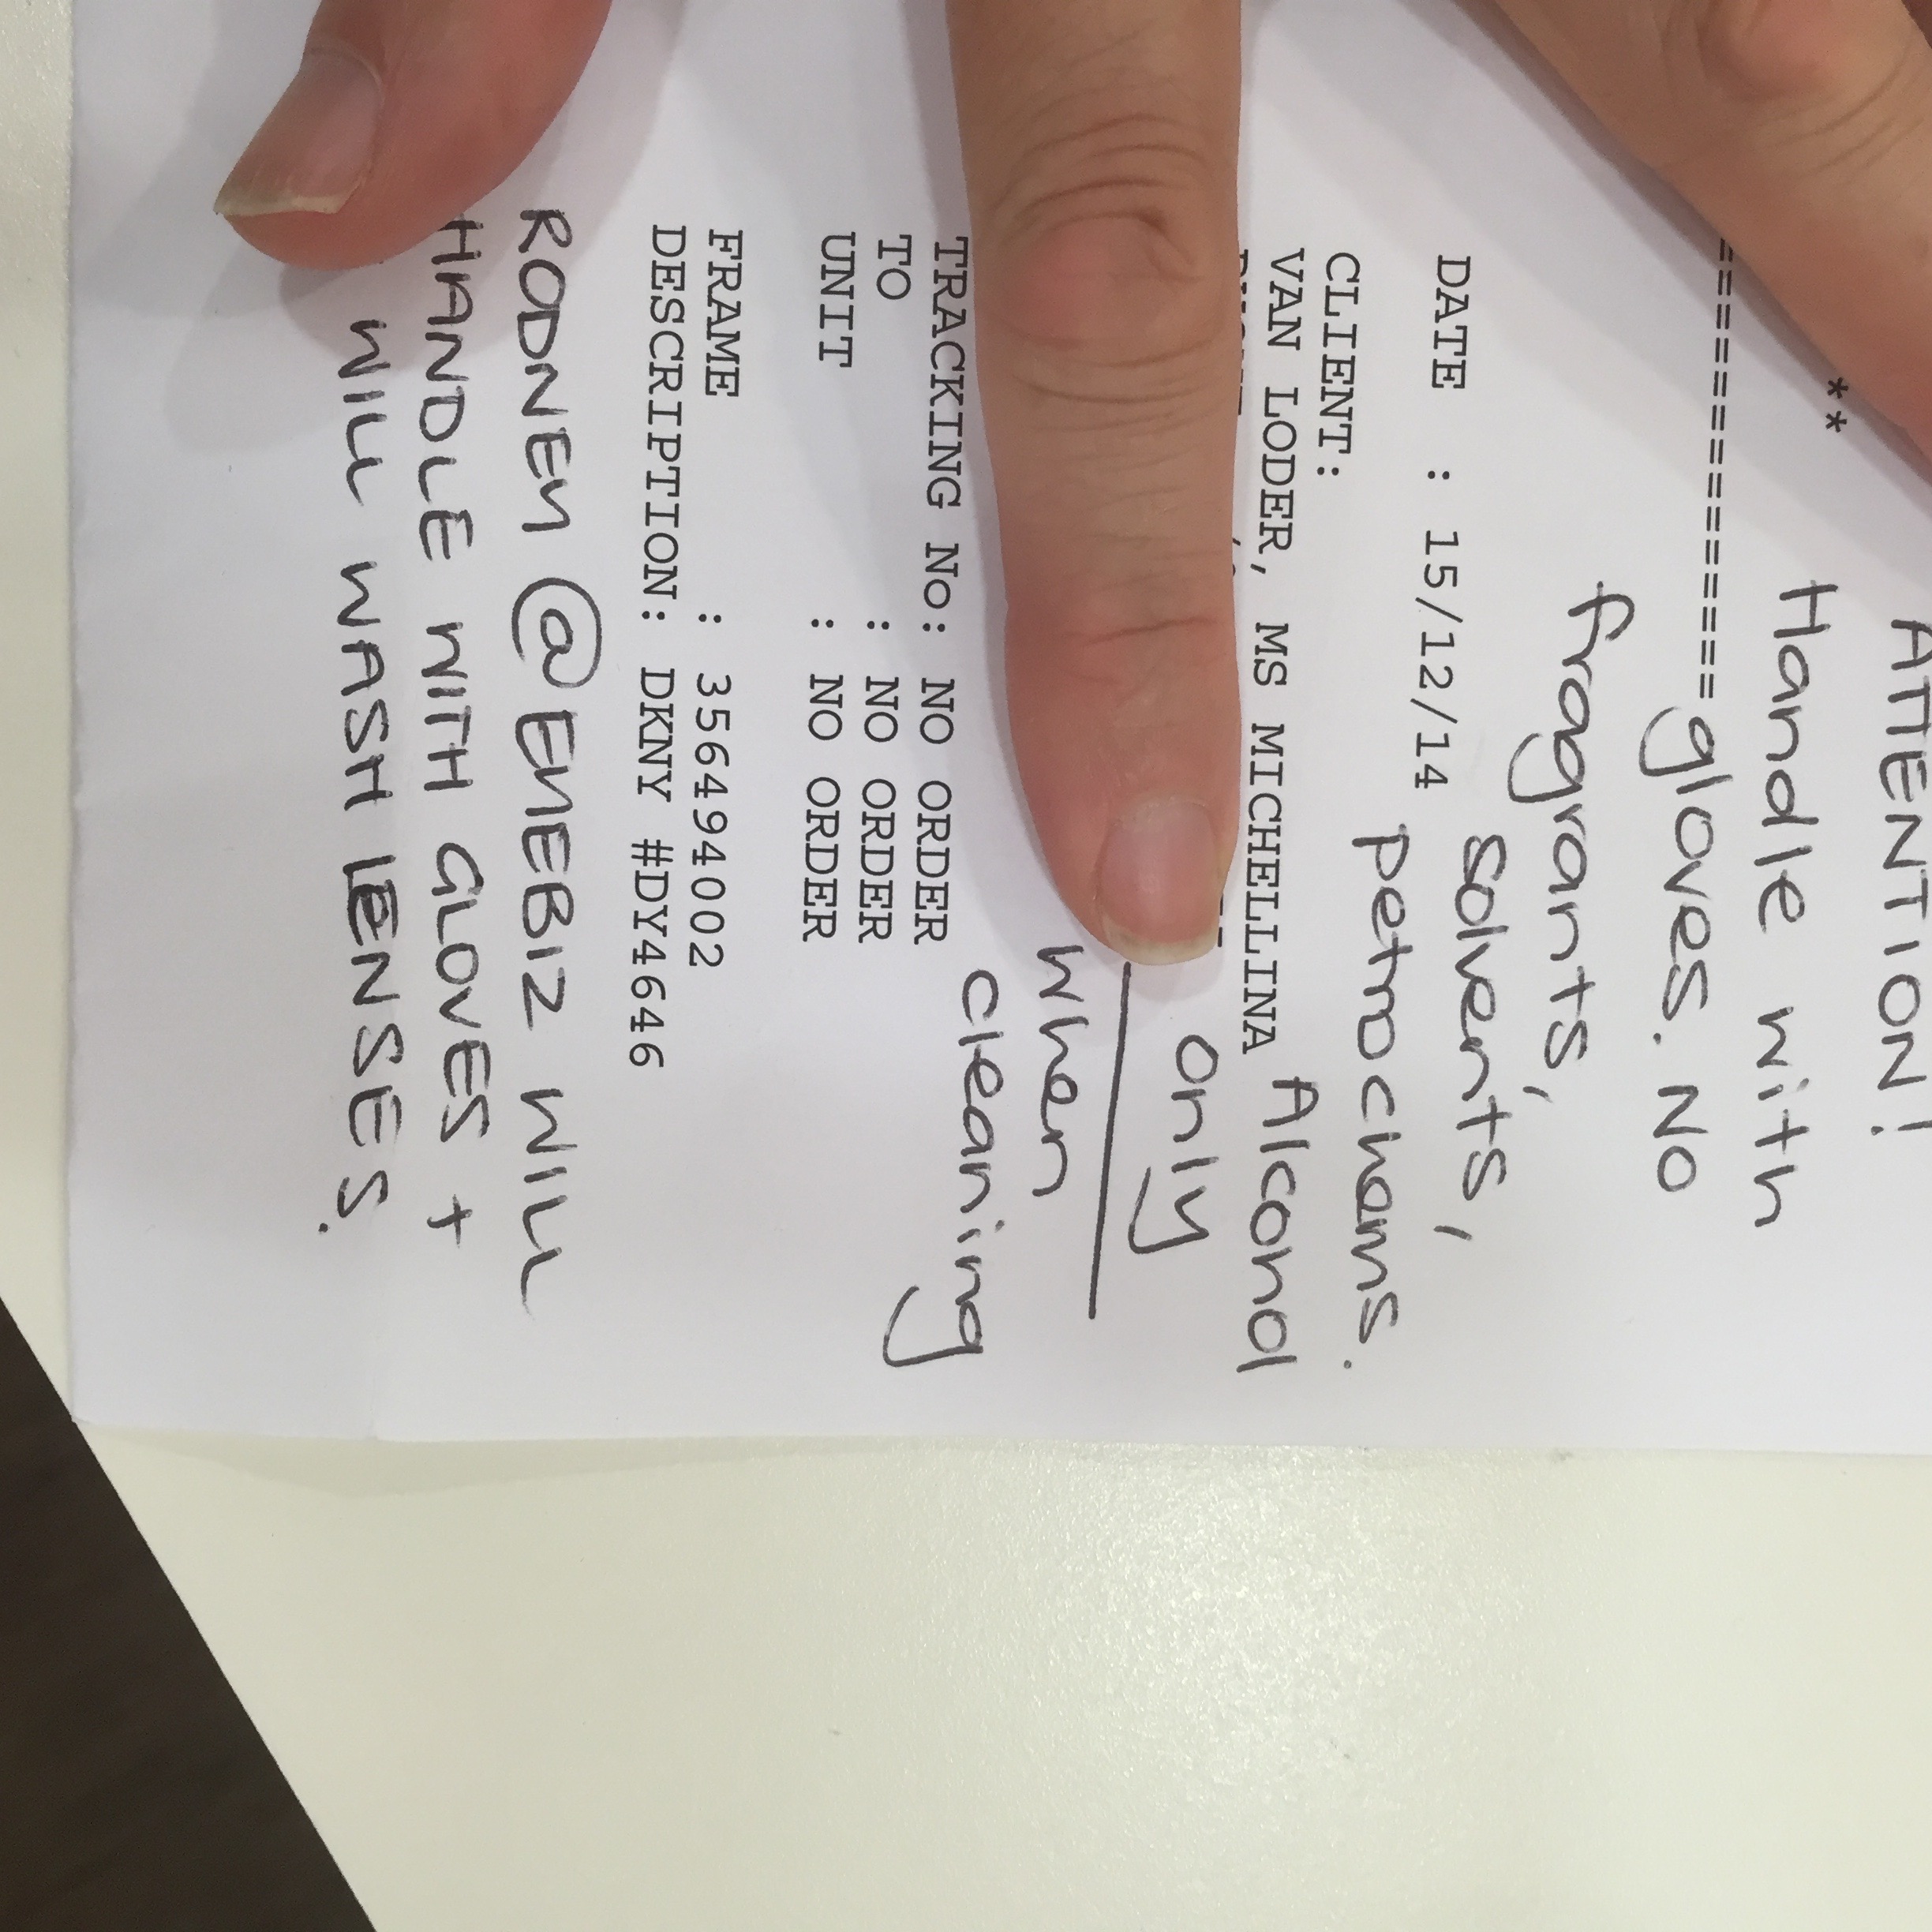 ATTENTION!
**
Handle with
============= gloves. No
fragrants,
solvents,
DATE : 15/12/14
petrochems.
CLIENT:
VAN LODER, MS MICHELLINA
Alcohol
only
when
cleaning
TRACKING No: NO ORDER
TO : NO ORDER
UNIT : NO ORDER
FRAME : 356494002
DESCRIPTION: DKNY #DY4646
RODNEY @ EYEBIZ WILL
HANDLE WITH GLOVES +
WILL WASH LENSES.